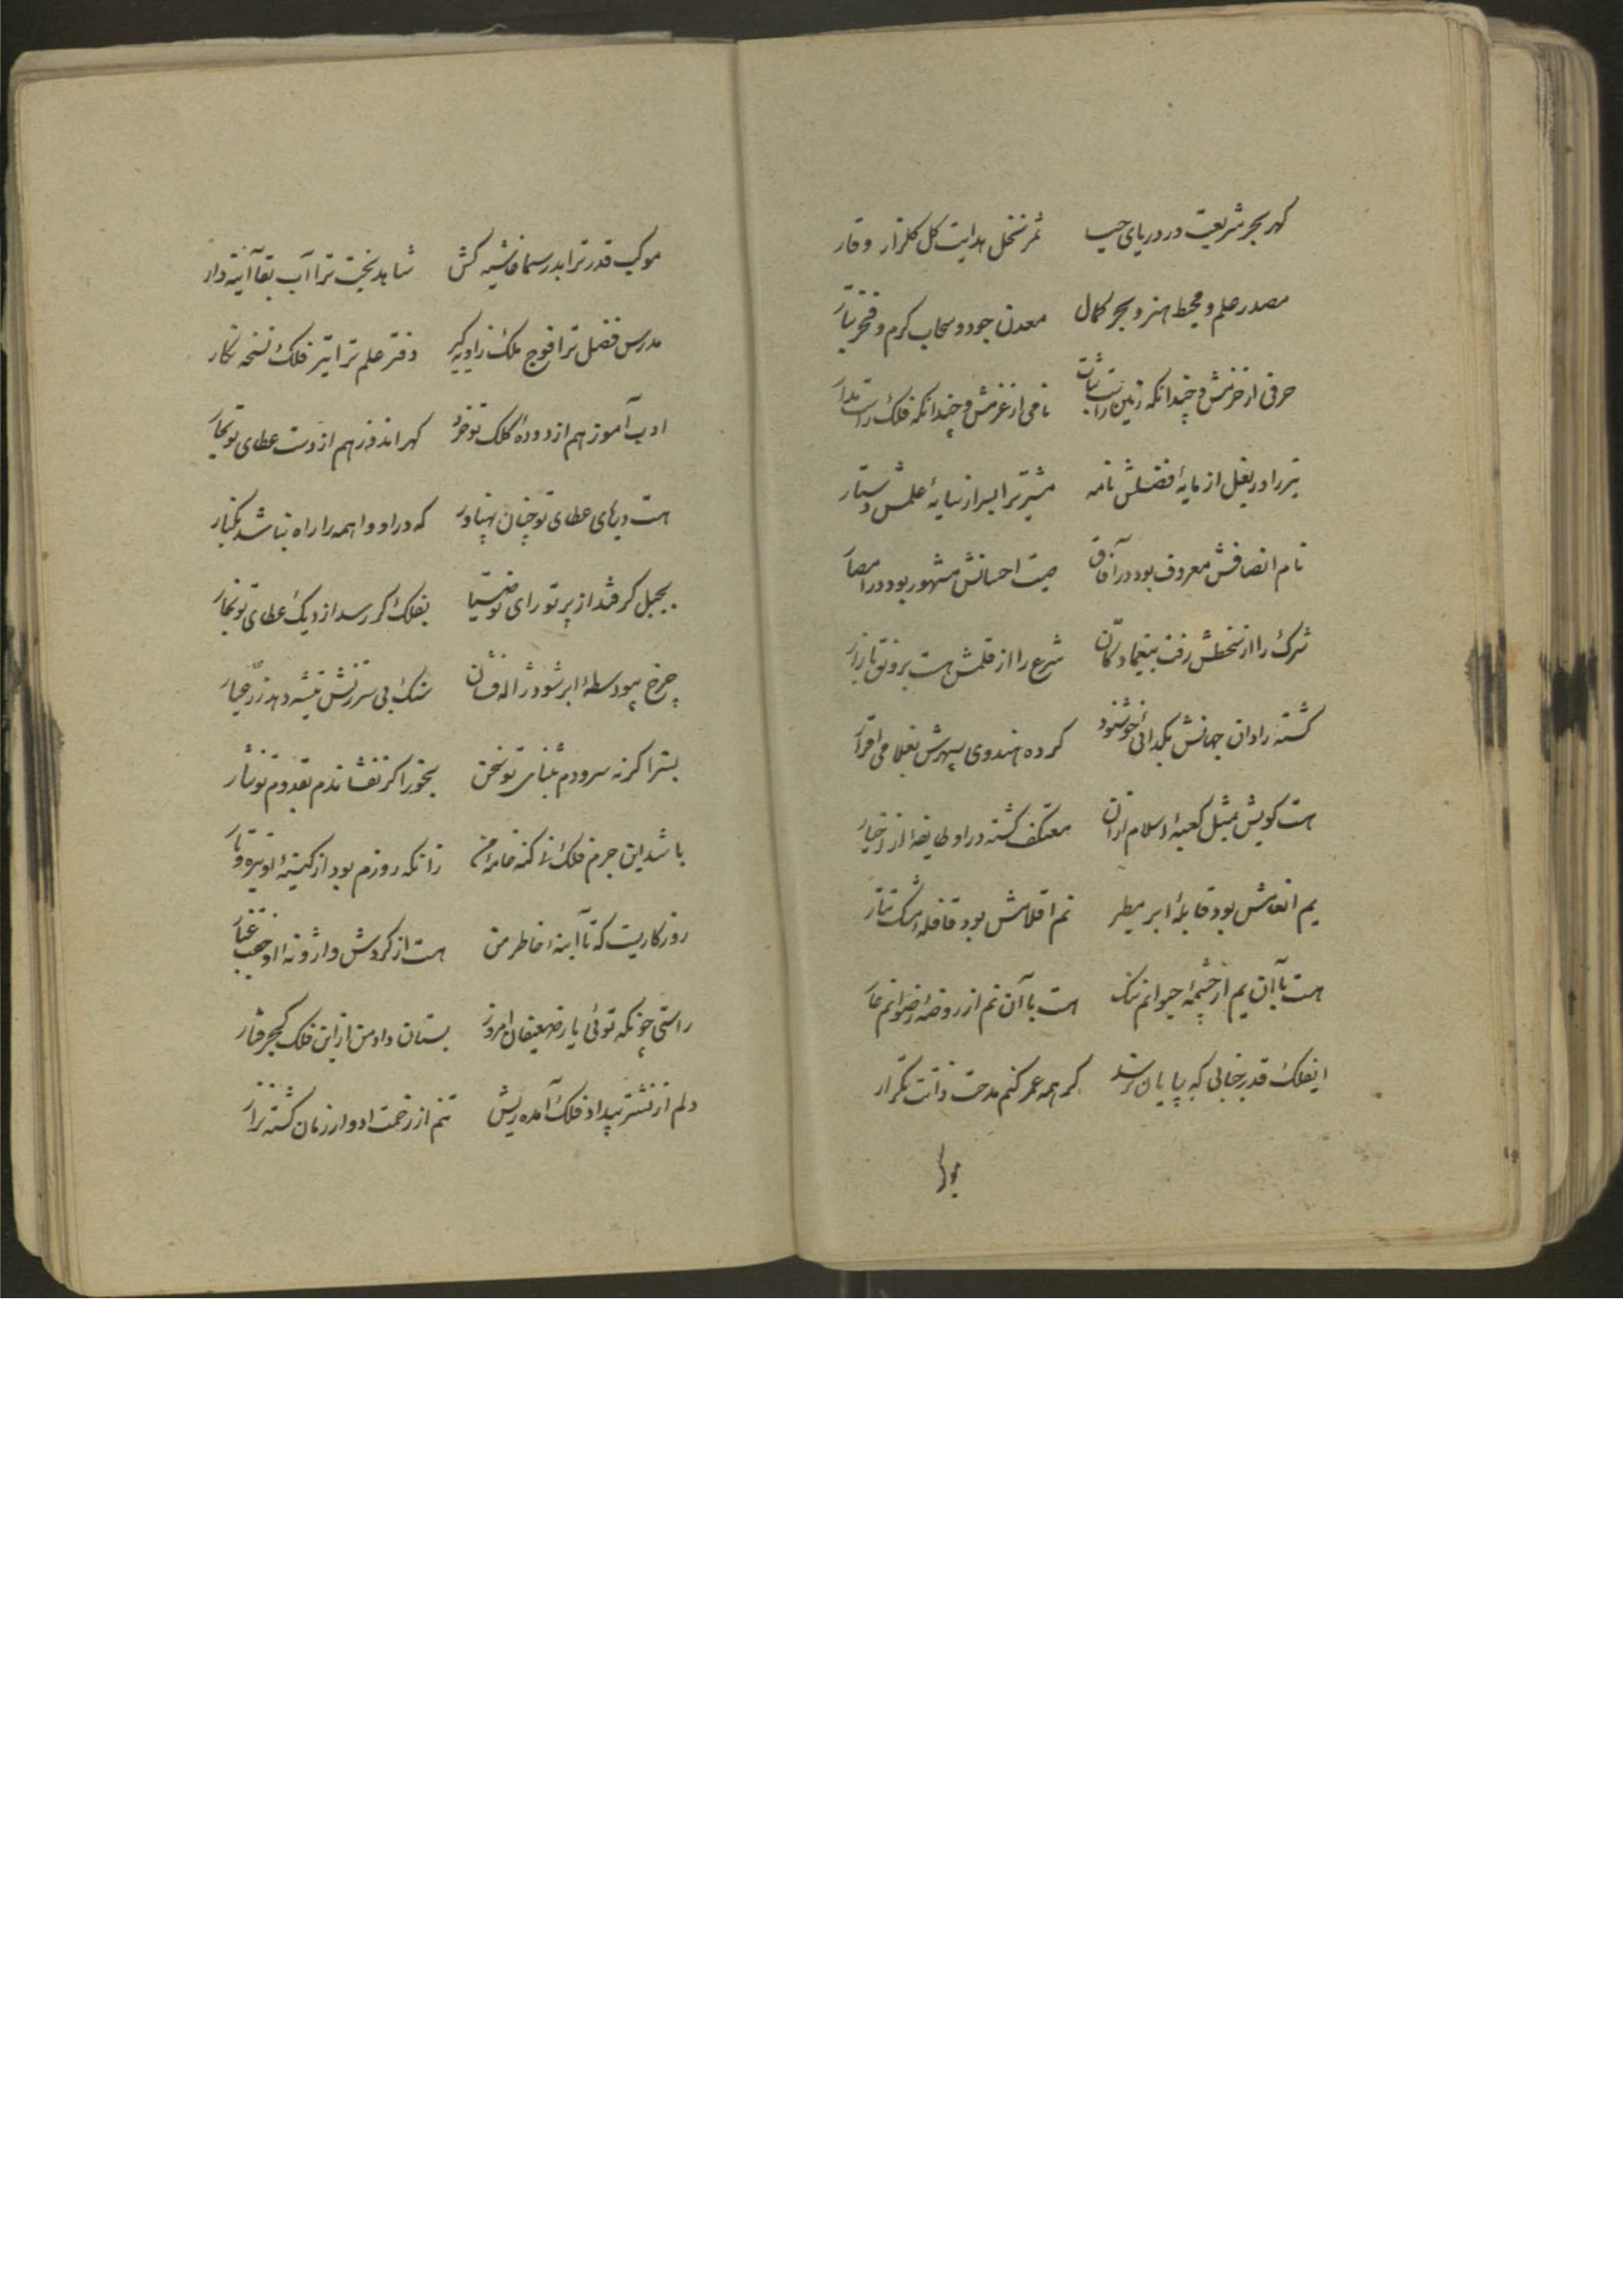 کهر بحر شریعت در دریای حسب ثمر نخل هدایت کل کلزار وقار
مصدر علم و محیط هنر و بحر کمال معدن جود و سحاب کرم و فخر تبار
حرفی از حزمش و چندانکه زمین راست ثبات نامی از عزمش و چندانکه فلک راست مدار
تیر را در بغل از مایهٔ فضلش نامه مشتری را بسر از سایهٔ علمش دستار
نام انصافش معروف بود در آفاق صیت احسانش مشهور بود در امصار
شرک را از سخطش رفت بیغما دکان شرع را از قلمش هست برونق بازار
کشته رادان جهانش بکدائی خوشنود کرده هندوی سپهرش بغلامی اقرار
هست کویش بمثل کعبهٔ اسلام از آن معتکف کشته در او طایفهٔ از اخیار
یم انعامش بود قابلهٔ ابر مطیر نم اقلامش بود قافلهٔ مشک تتار
هست با آن یم از چشمهٔ حیوانم ننک هست با آن نم از روضهٔ رضوانم عار
ایفلک قدر جنابی که بپایان نرسد کر همه عمر کنم مدحت ذاتت تکرار
موکب قدر ترا بدر سما غاشیه کش شاهد بخت ترا آب بقا آئینه دار
مدرس فضل ترا فوج ملک زاویه کیر دفتر علم ترا تیر فلک نسخه نکار
ادب آموز هم از دودهٔ کلک تو خرد کهر اندوز هم از دست عطای تو بحار
هست دریای عطای تو چنان پهناور که در او واهمه را راه نباشد بکنار
بجبل کر فتد از پرتو رای تو ضیا بفلک کر رسد از دیک عطای تو بخار
چرخ بیوسطهٔ ابر شود ژاله فشان سنک بی سرزنش تیشه دهد زر عیار
بسزا کر نه سرودم بثنای تو سخن بخور اکر نفشاندم بقدوم تو نثار
باشد این جرم فلک نز کنه خامهٔ من زانکه روزم بود از کینهٔ او تیره و تار
روزکاریست که تا آینهٔ خاطر من هست از کردش واژونهٔ او غبار
راستی چونکه توئی یار ضعیفان امروز بستان داد من از این فلک کجرفتار
دلم از نشتر بیداد فلک آمده ریش تنم از زحمت ادوار زمان کشته نزار